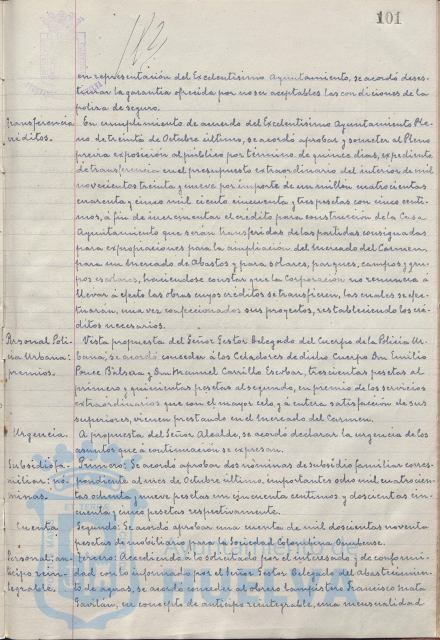 101
en representación del Excelentísimo Ayuntamiento, se acordó deses-
timar la garantía ofrecida por no ser aceptables las condiciones de la
poliza de seguro.
Transferencia En cumplimiento de acuerdo del Excelentísimo Ayuntamiento Ple-
créditos. no de treinta de Octubre último, se acordó aprobar y someter al Pleno
previa exposición al público por término de quince dias, expediente
de transferencia en el presupuesto extraordinario del interior de mil
novecientos treinta y nueve por importe de un millón cuatrocientas
cuarenta y cinco mil ciento cincuenta y tres pesetas con cinco centi-
mos, á fin de incrementar el crédito para construcción de la Casa
Ayuntamiento que serán transferidas de las partidas consignadas
para expropiaciones para la ampliación del Mercado del Carmen,
para un Mercado de Abastos y para solares, parques, campos y gru-
pos escolares, haciendose constar que la Corporación no renuncia á
llevar á efecto las obras cuyos créditos se transfieren, las cuales se efec-
tuarán, una vez confeccionados sus proyectos, restableciendo los cré-
ditos necesarios.
Personal Poli- Vista propuesta del Señor Gestor Delegado del Cuerpo de la Policia Ur-
cia Urbana: bana; se acordó conceder á los Celadores de dicho Cuerpo Don Emilio
premios. Ponce Balsera y Don Manuel Carrillo Escobar, trescientas pesetas al
primero y quinientas pesetas al segundo, en premio de los servicios
extraordinarios que con el mayor celo y á entera satisfacción de sus
superiores, vienen prestando en el Mercado del Carmen.
Urgencia. A propuesta del Señor Alcalde, se acordó declarar la urgencia de los
asuntos que a continuación se expresan.
Subsidio fa- Primero: Se acordó aprobar dos nóminas de subsidio familiar corres-
miliar: nó- pondiente al mes de Octubre último, importantes ocho mil cuatrocien-
minas. tas ochenta y nueve pesetas con cincuenta centimos y doscientas cin-
cuenta y cinco pesetas respectivamente.
Cuenta Segundo: Se acordó aprobar una cuenta de mil doscientas noventa
pesetas de mobiliario para la Sociedad Colombina Onubense.
Personal: an- Tercero: Accediendo á lo solicitado por el interesado y de conformi-
ticipo rein- dad con lo informado por el Señor Gestor Delegado del Abastecimien-
tegrable. to de aguas, se acordó conceder al obrero lampistero Francisco Mata
Gavilán, en concepto de anticipo reintegrable, una mensualidad